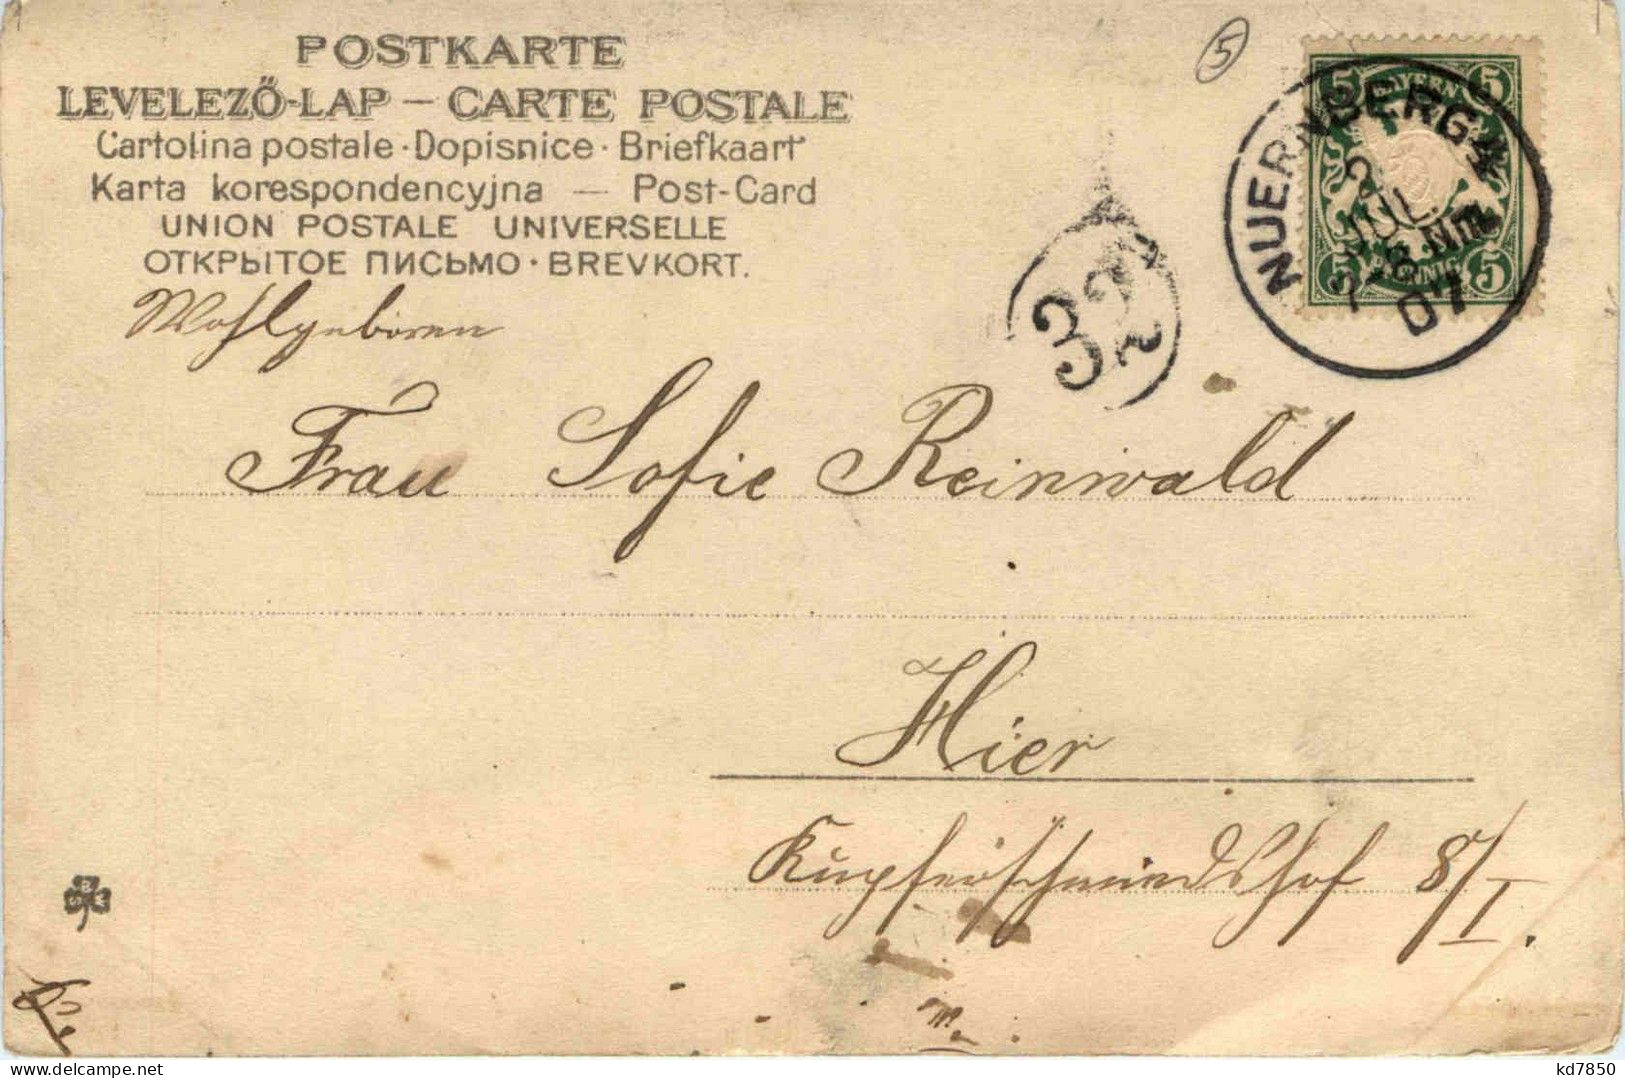 POSTKARTE
LEVELEZŐ-LAP – CARTE POSTALE
Cartolina postale · Dopisnice · Briefkaart
Karta korespondencyjna — Post-Card
UNION POSTALE UNIVERSELLE
ОТКРЫТОЕ ПИСЬМО · BREVKORT.
5
BAYERN
5 5
PFENNIG
5
NUERNBERG 4
2 JUL.
7-8 Nm
07
32
Wohlgeboren
Frau Sofie Reinwald
Hier
Kupferschmiedshof 8/I.
kd7850